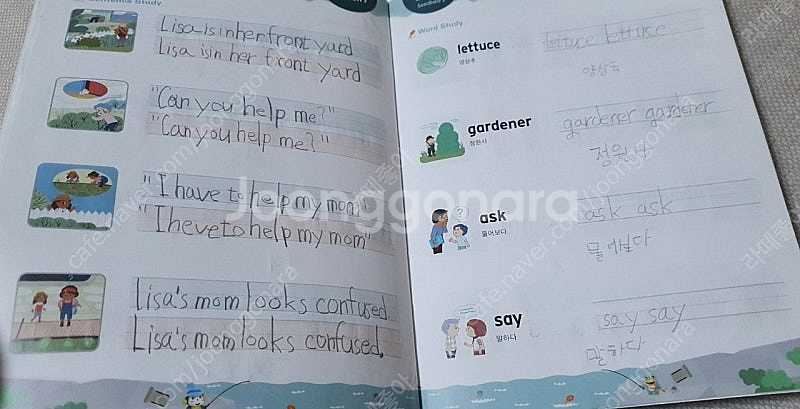 Study
Lisa is in her front yard
Lisa isin her front yard
"Can you help me?"
"Can you help me?"
"I have to help my mom"
"I heve to help my mom"
Lisa's mom looks confused.
Lisa's mom looks confused.
Word Study
lettuce
양상추
lettuce lettuce
gardener
정원사
gardener gardener
정원사
ask
물어보다
ask ask
물어보다
say
말하다
say say
말하다
Joonggonara
cafe.naver.com/joonggonara